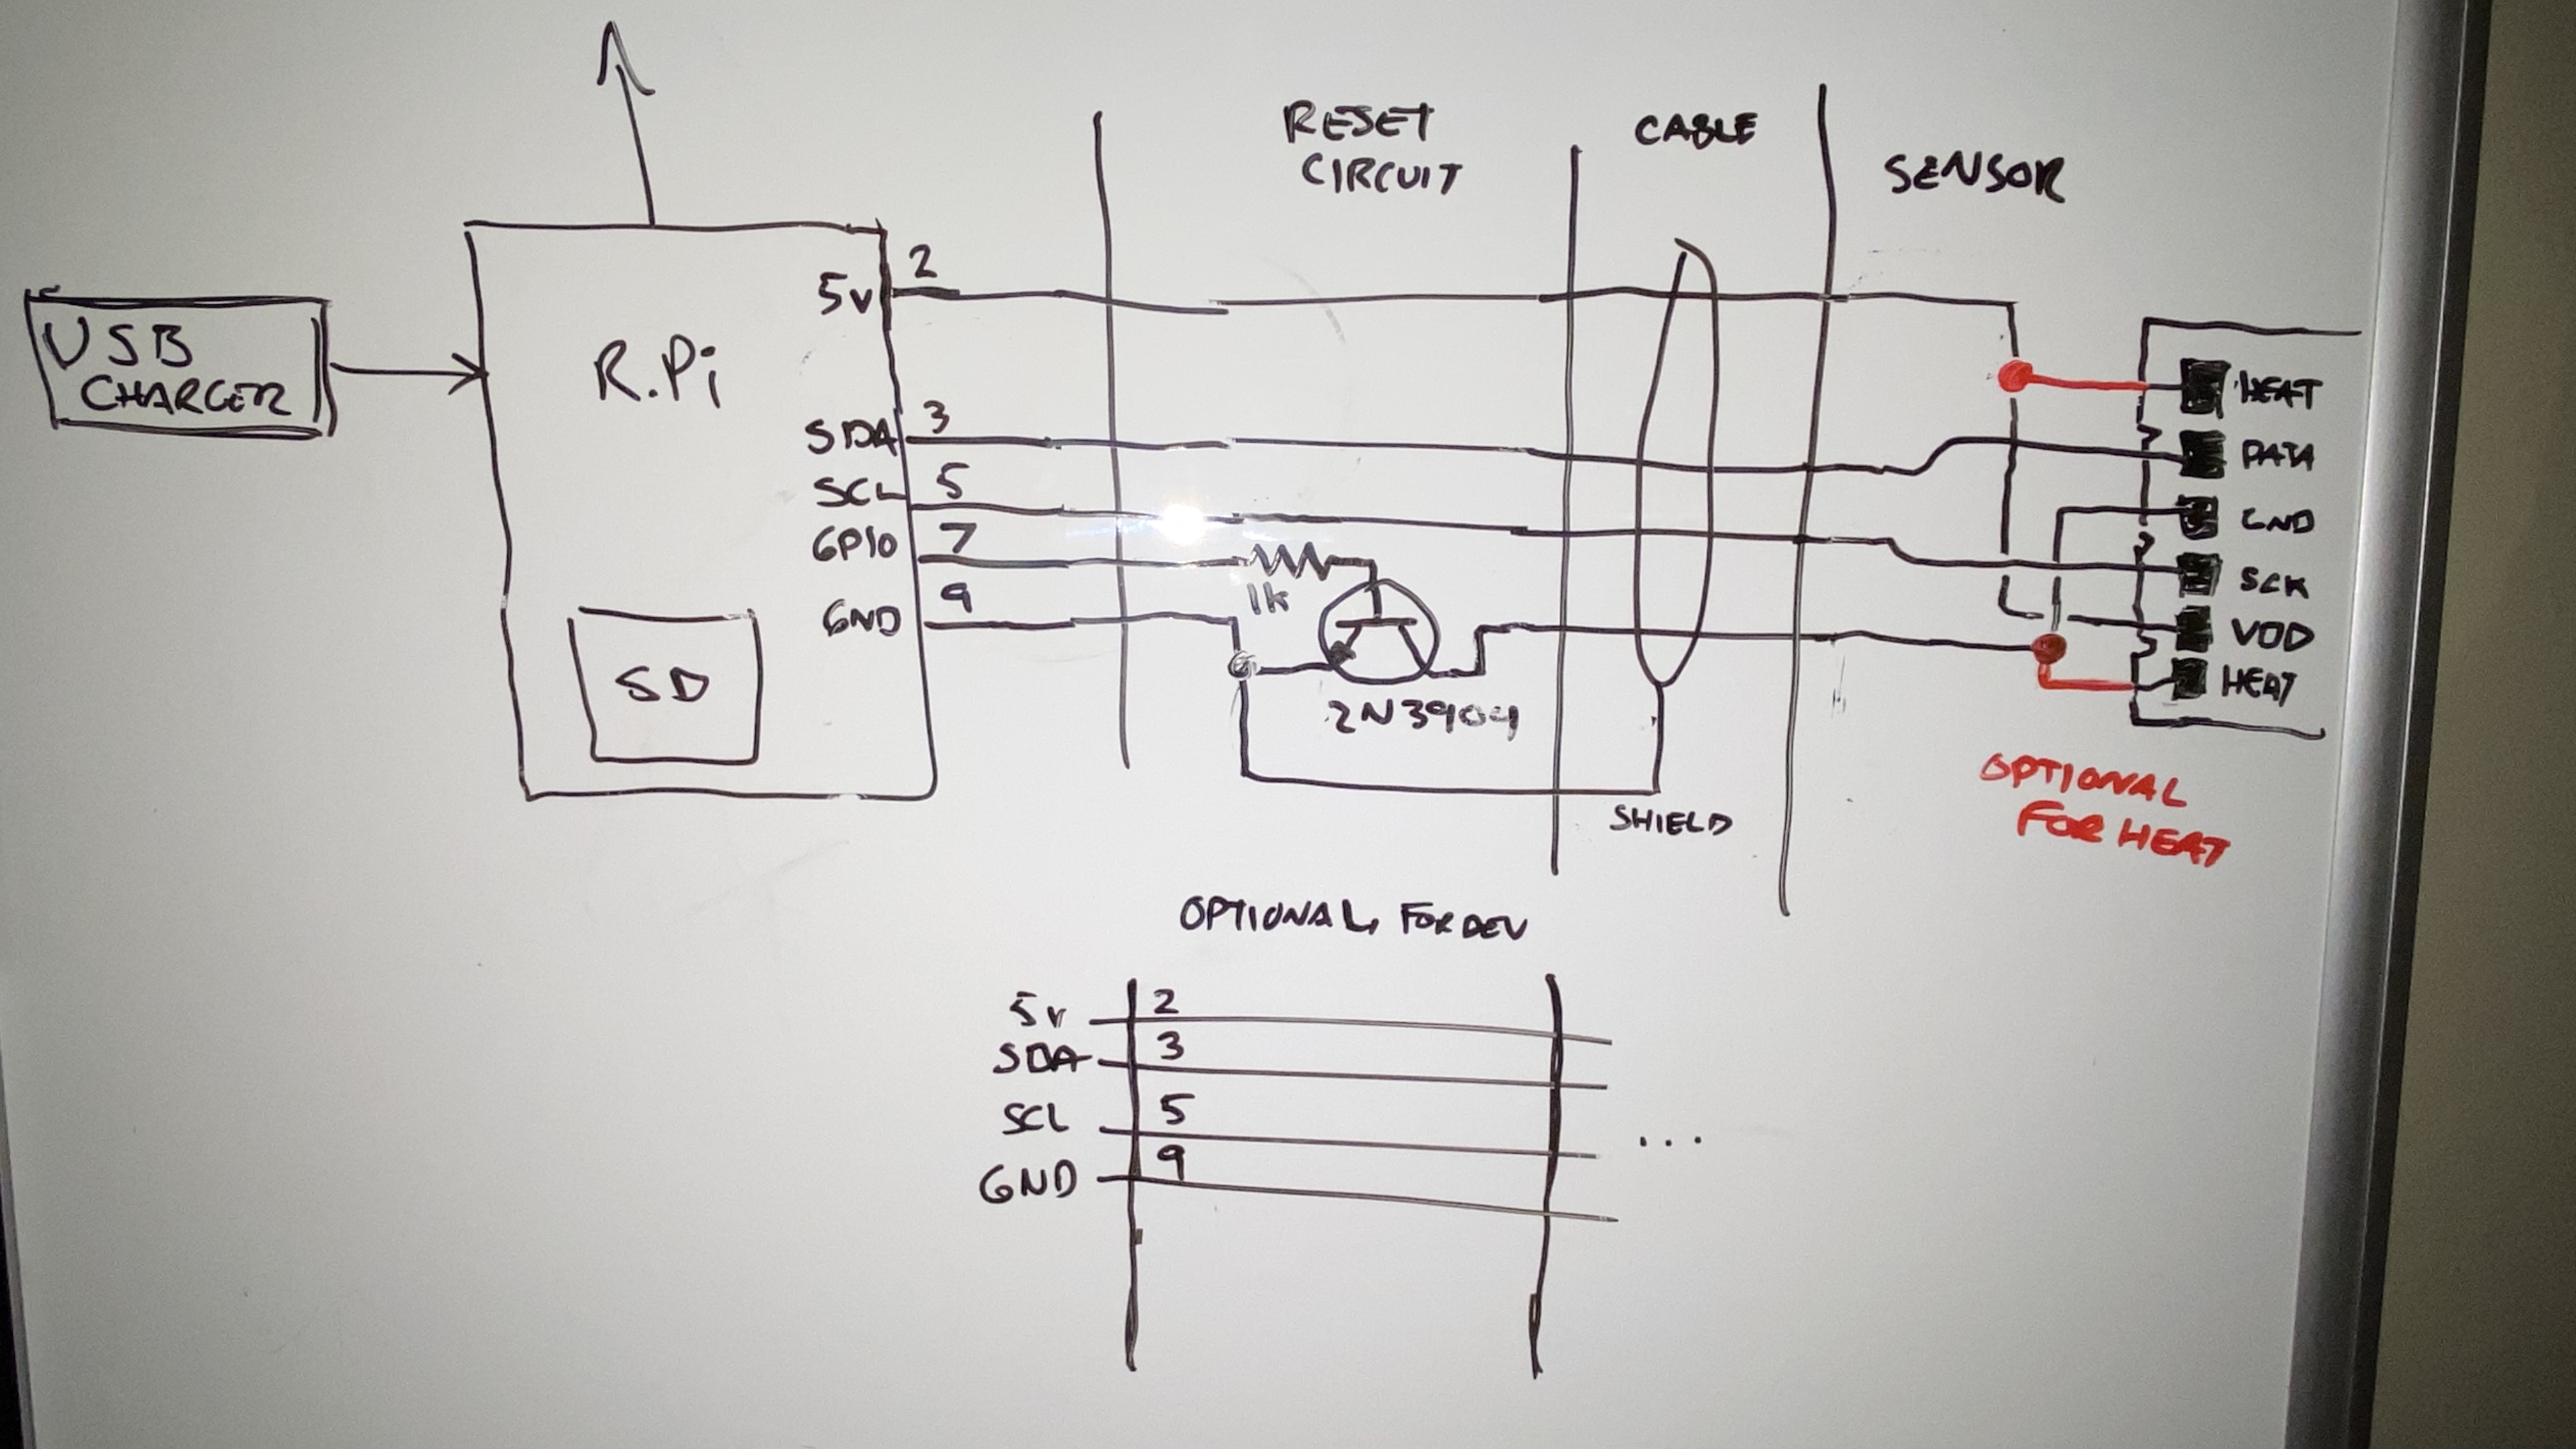 RESET
CIRCUIT
CABLE
SENSOR
USB
CHARGER
R.Pi
SD
5v 2
SDA 3
SCL 5
GPIO 7
GND 9
1k
2N3904
SHIELD
HEAT
DATA
GND
SCK
VDD
HEAT
OPTIONAL
FOR HEAT
OPTIONAL, FOR DEV
5v 2
SDA 3
SCL 5
GND 9
...